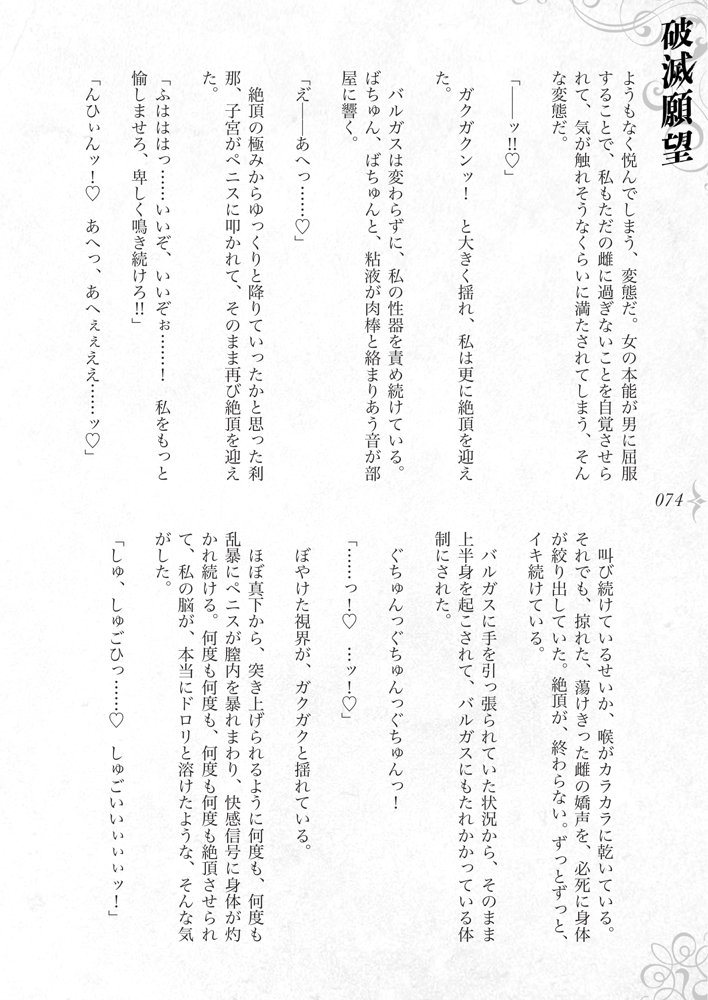 破滅願望
ようもなく悦んでしまう、変態だ。女の本能が男に屈服
することで、私もただの雌に過ぎないことを自覚させら
れて、気が触れそうなくらいに満たされてしまう、そん
な変態だ。
「――ッ!!♡」
ガクガクンッ!　と大きく揺れ、私は更に絶頂を迎え
た。
バルガスは変わらずに、私の性器を責め続けている。
ばちゅん、ばちゅんと、粘液が肉棒と絡まりあう音が部
屋に響く。
「え゛――あへっ……♡」
絶頂の極みからゆっくりと降りていったかと思った刹
那、子宮がペニスに叩かれて、そのまま再び絶頂を迎え
た。
「ふははは……いいぞ、いいぞぉ……!　私をもっと
愉しませろ、卑しく鳴き続けろ!!」
「んひぃんッ!♡　あへっ、あへぇぇええ……ッ♡」
074
叫び続けているせいか、喉がカラカラに乾いている。
それでも、掠れた、蕩けきった雌の嬌声を、必死に身体
が絞り出していた。絶頂が、終わらない。ずっとずっと、
イキ続けている。
バルガスに手を引っ張られていた状況から、そのまま
上半身を起こされて、バルガスにもたれかかっている体
制にされた。
ぐちゅんっぐちゅんっぐちゅんっ!
「……っ!♡　…ッ!♡」
ぼやけた視界が、ガクガクと揺れている。
ほぼ真下から、突き上げられるように何度も、何度も
乱暴にペニスが膣内を暴れまわり、快感信号に身体が灼
かれ続ける。何度も何度も、何度も何度も絶頂させられ
て、私の脳が、本当にドロリと溶けたような、そんな気
がした。
「しゅ、しゅごひっ……♡　しゅごいいぃぃぃッ!」